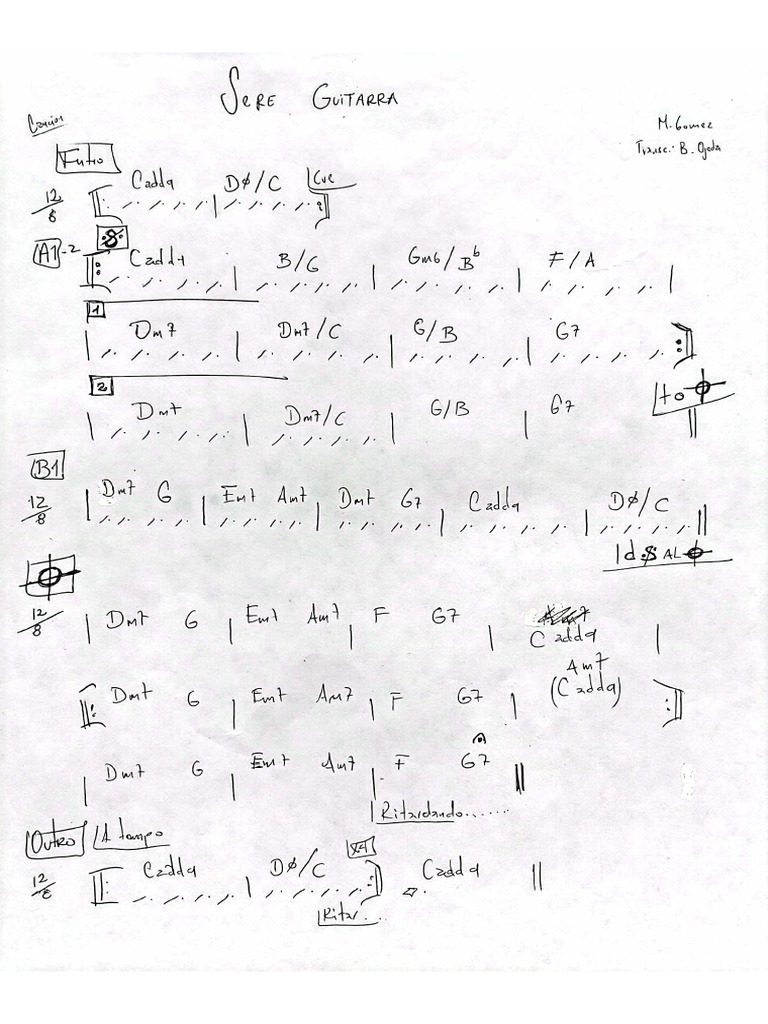 SERE GUITARRA
Canción
M. Gomez
Transc.: B. Ojeda
Intro
12/8 Cadd9 DØ/C Cue
A1-2 Cadd9 B/G Gm6/Bb F/A
1
Dm7 Dm7/C G/B G7
2
Dm7 Dm7/C G/B G7 to
B1
12/8 Dm7 G Em7 Am7 Dm7 G7 Cadd9 DØ/C
AL
12/8 Dm7 G Em7 Am7 F G7 Cadd9
Am7
Dm7 G Em7 Am7 F G7 (Cadd9)
Dm7 G Em7 Am7 F G7
Ritardando......
Outro A tempo
x4
12/8 Cadd9 DØ/C Cadd9
Ritar...